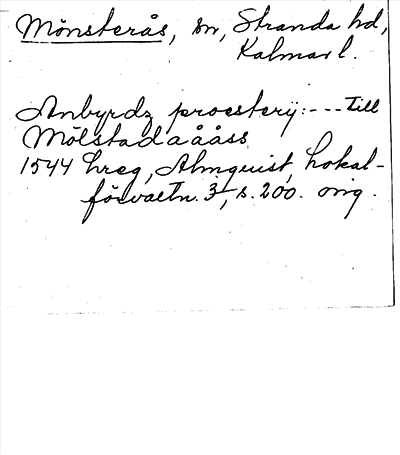 Mönsterås, sn, Stranda hd,
Kalmar l.
Anbyrdz proesterij: --- till
Mölstadaååss
1544 hreg, Almquist, Lokal-
förvaltn. 3, s. 200. orig.